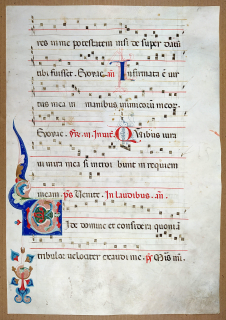 res in me potestatem nisi de super datū
tibi fuisset. Evovae. añ Infirmata ē vir
tus mea in manibus inimicorū meor.
Evovae. Fe. iii. Invit. Quibus iura
vi in ira mea si introi bunt in requiem
meam. ps Venite. In laudibus. añ.
Vide domine et considera quoniā
tribulor velociter exaudi me. ps Mis. mi.